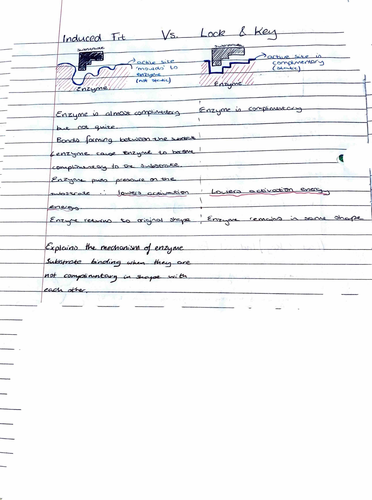 Induced Fit Vs. Lock & Key
Substrate
active site
"moulds" to
enzyme
(not static)
Enzyme
active site is
complimentary
(static)
Enzyme
Enzyme is almost complimentary
but not quite.
Bonds forming between the
& enzyme cause enzyme to become
complimentary to the substrate.
Enzyme puts pressure on the
substrate ∴ lowers activation
energy
Enzyme returns to original shape
Enzyme is complimentary
Lowers activation energy
Enzyme remains in same shape
Explains the mechanism of enzyme
substrate binding when they are
not complimentary in shape with
each other.